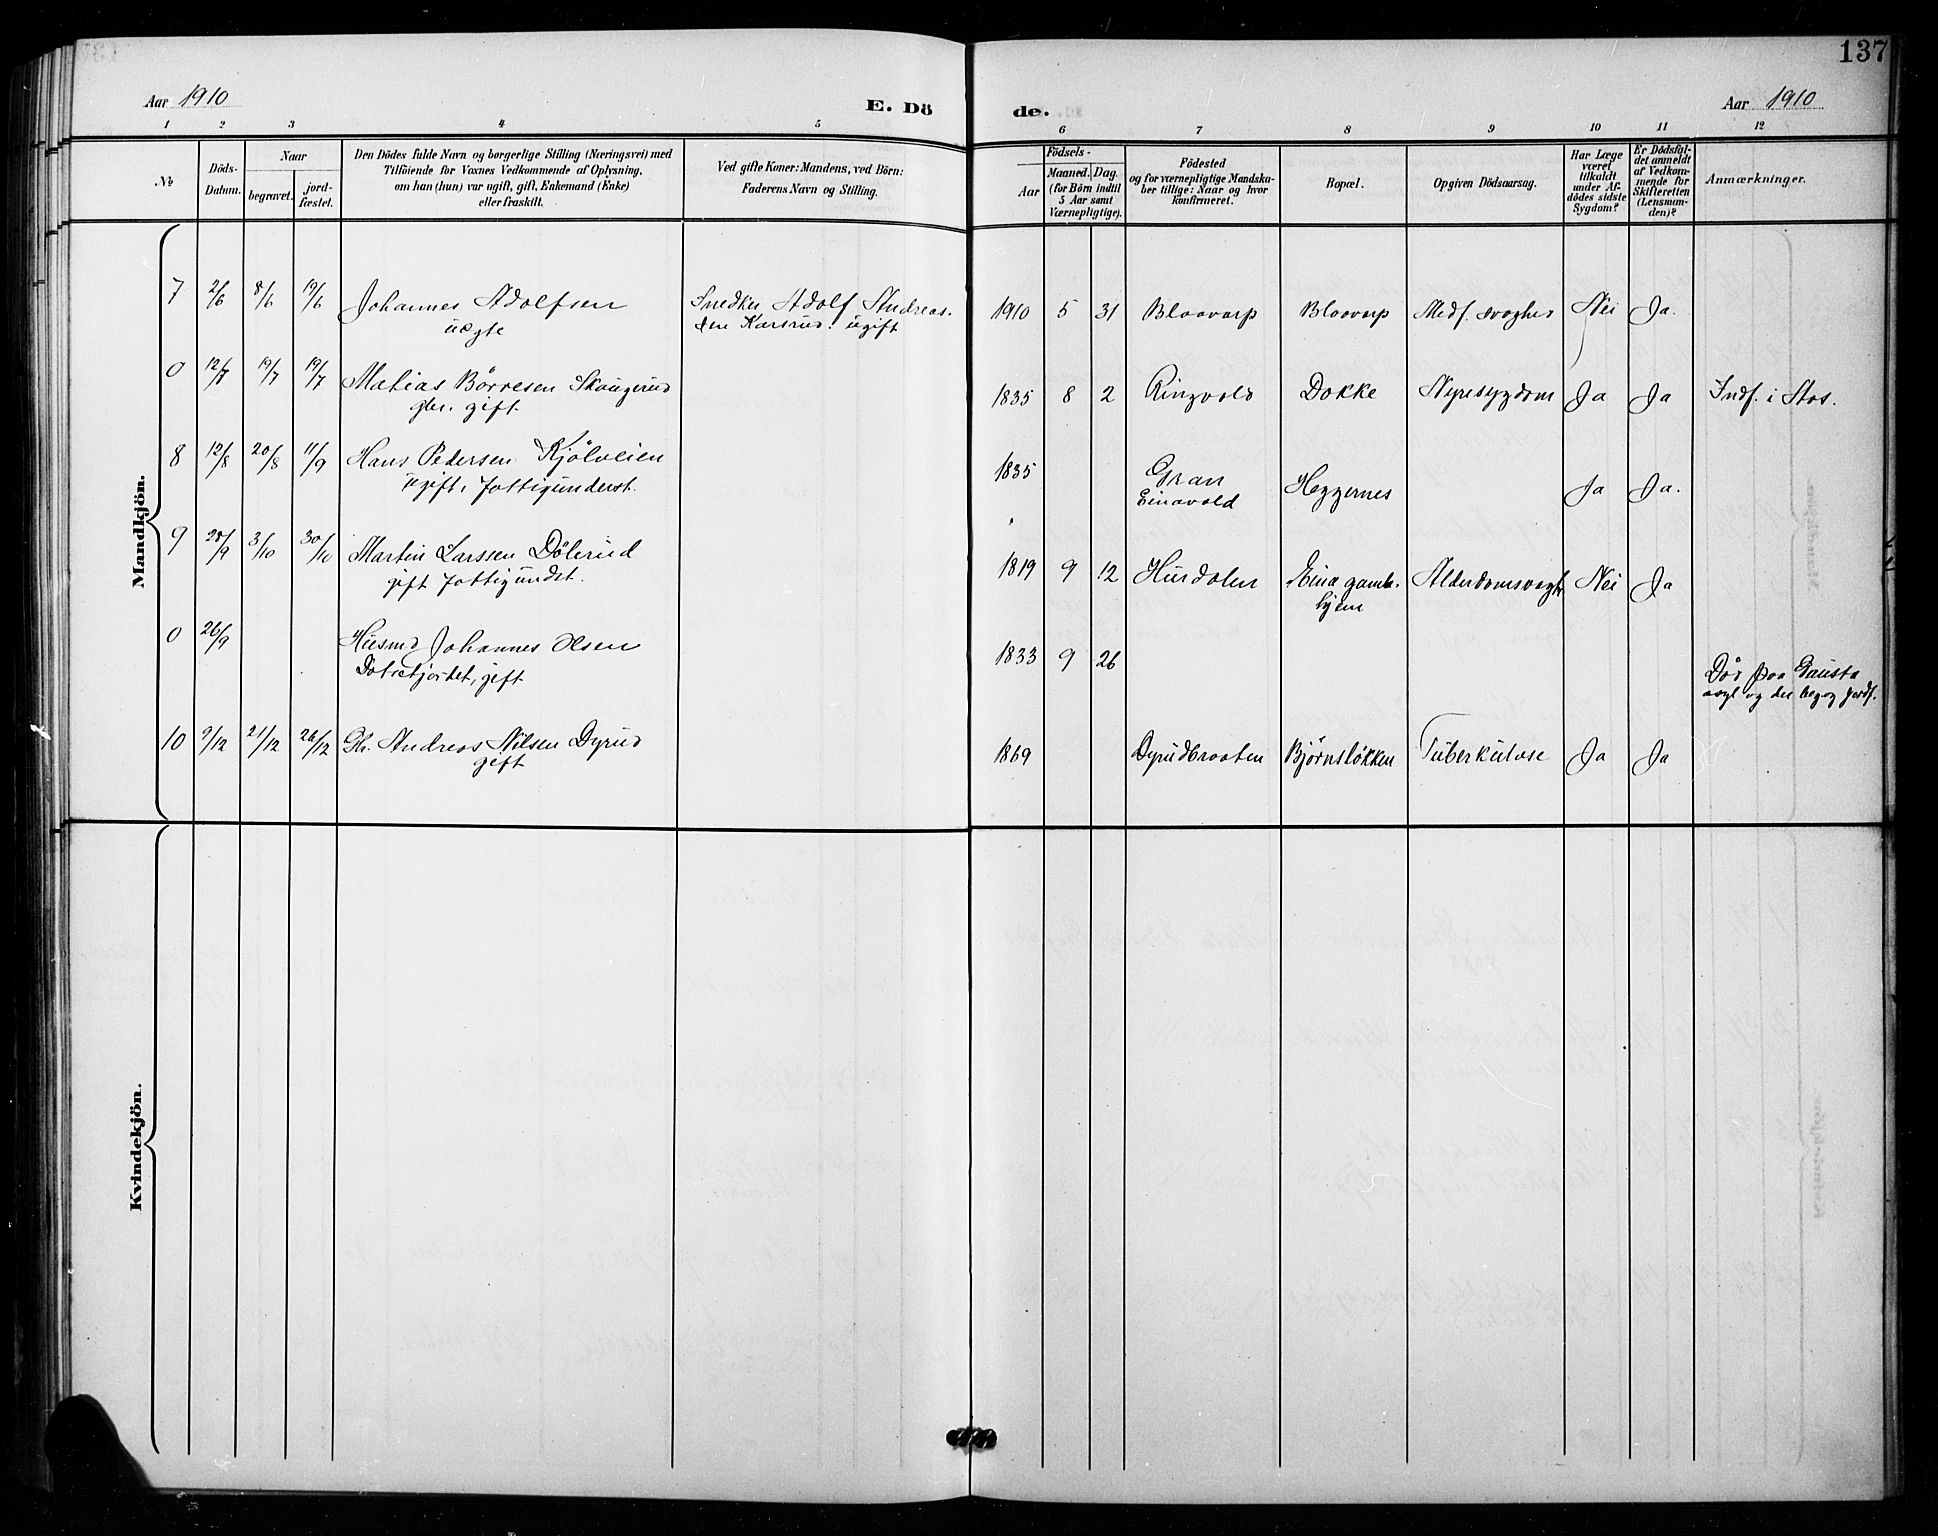 137
Aar 1910
E. Dö
de.
Aar 1910
1 2 3 4 5 6 7 8 9 10 11 12
No
Döds-Datum.
Naar
begravet.
jord-fæstet.
Den Dödes fulde Navn og borgerlige Stilling (Næringsvei) med
Tilföiende for Voxnes Vedkommende af Oplysning,
om han (hun) var ugift, gift, Enkemand (Enke)
eller fraskilt.
Ved gifte Koner: Mandens, ved Börn:
Faderens Navn og Stilling.
Födsels-
Aar
Maaned. Dag.
(for Börn indtil
5 Aar samt
Værnepligtige).
Födested
og for værnepligtige Mandska-
ber tillige: Naar og hvor
konfirmeret.
Bopæl.
Opgiven Dödsaarsag.
Har Læge
været
tilkaldt
under Af-
dödes sidste
Sygdom?
Er Dödsfal-
det anmeldt
af Vedkom-
mende for
Skifteretten
(Lensman-
den)?
Anmærkninger.
Mandkjön.
7 2/6 8/6 19/6 Johannes Adolfsen Snedker Adolf Andreas- 1910 5 31 Blaavarp Blaavarp Medf. svaghed Nei Ja.
uægte sen Karsrud. ugift
0 12/7 19/7 19/7 Matias Børresen Skaugerud 1835 8 2 Ringvold Dokke Nyresygdom Ja Ja Indf. i Stas.
gbr. gift
8 12/8 20/8 11/9 Hans Pedersen Kjölveien 1835 Gran Heggernes Ja Ja.
ugift, fattigunderst. Einavold
9 28/9 3/10 30/10 Martin Larssen Dölerud 1819 9 12 Hurdalen Eina gamle- Alderdomssvagh Nei Ja
gift fattigundst. hjem
0 26/9 Husmd Johannes Olsen 1833 9 26
gift Død paa Gausta
asyl og der beg og jordf.
10 9/12 21/12 26/12 Gbr. Andreas Nilsen Dyrud 1869 Dyrudbraaten Bjørnsløkken Tuberkulose Ja Ja
gift
Kvindekjön.